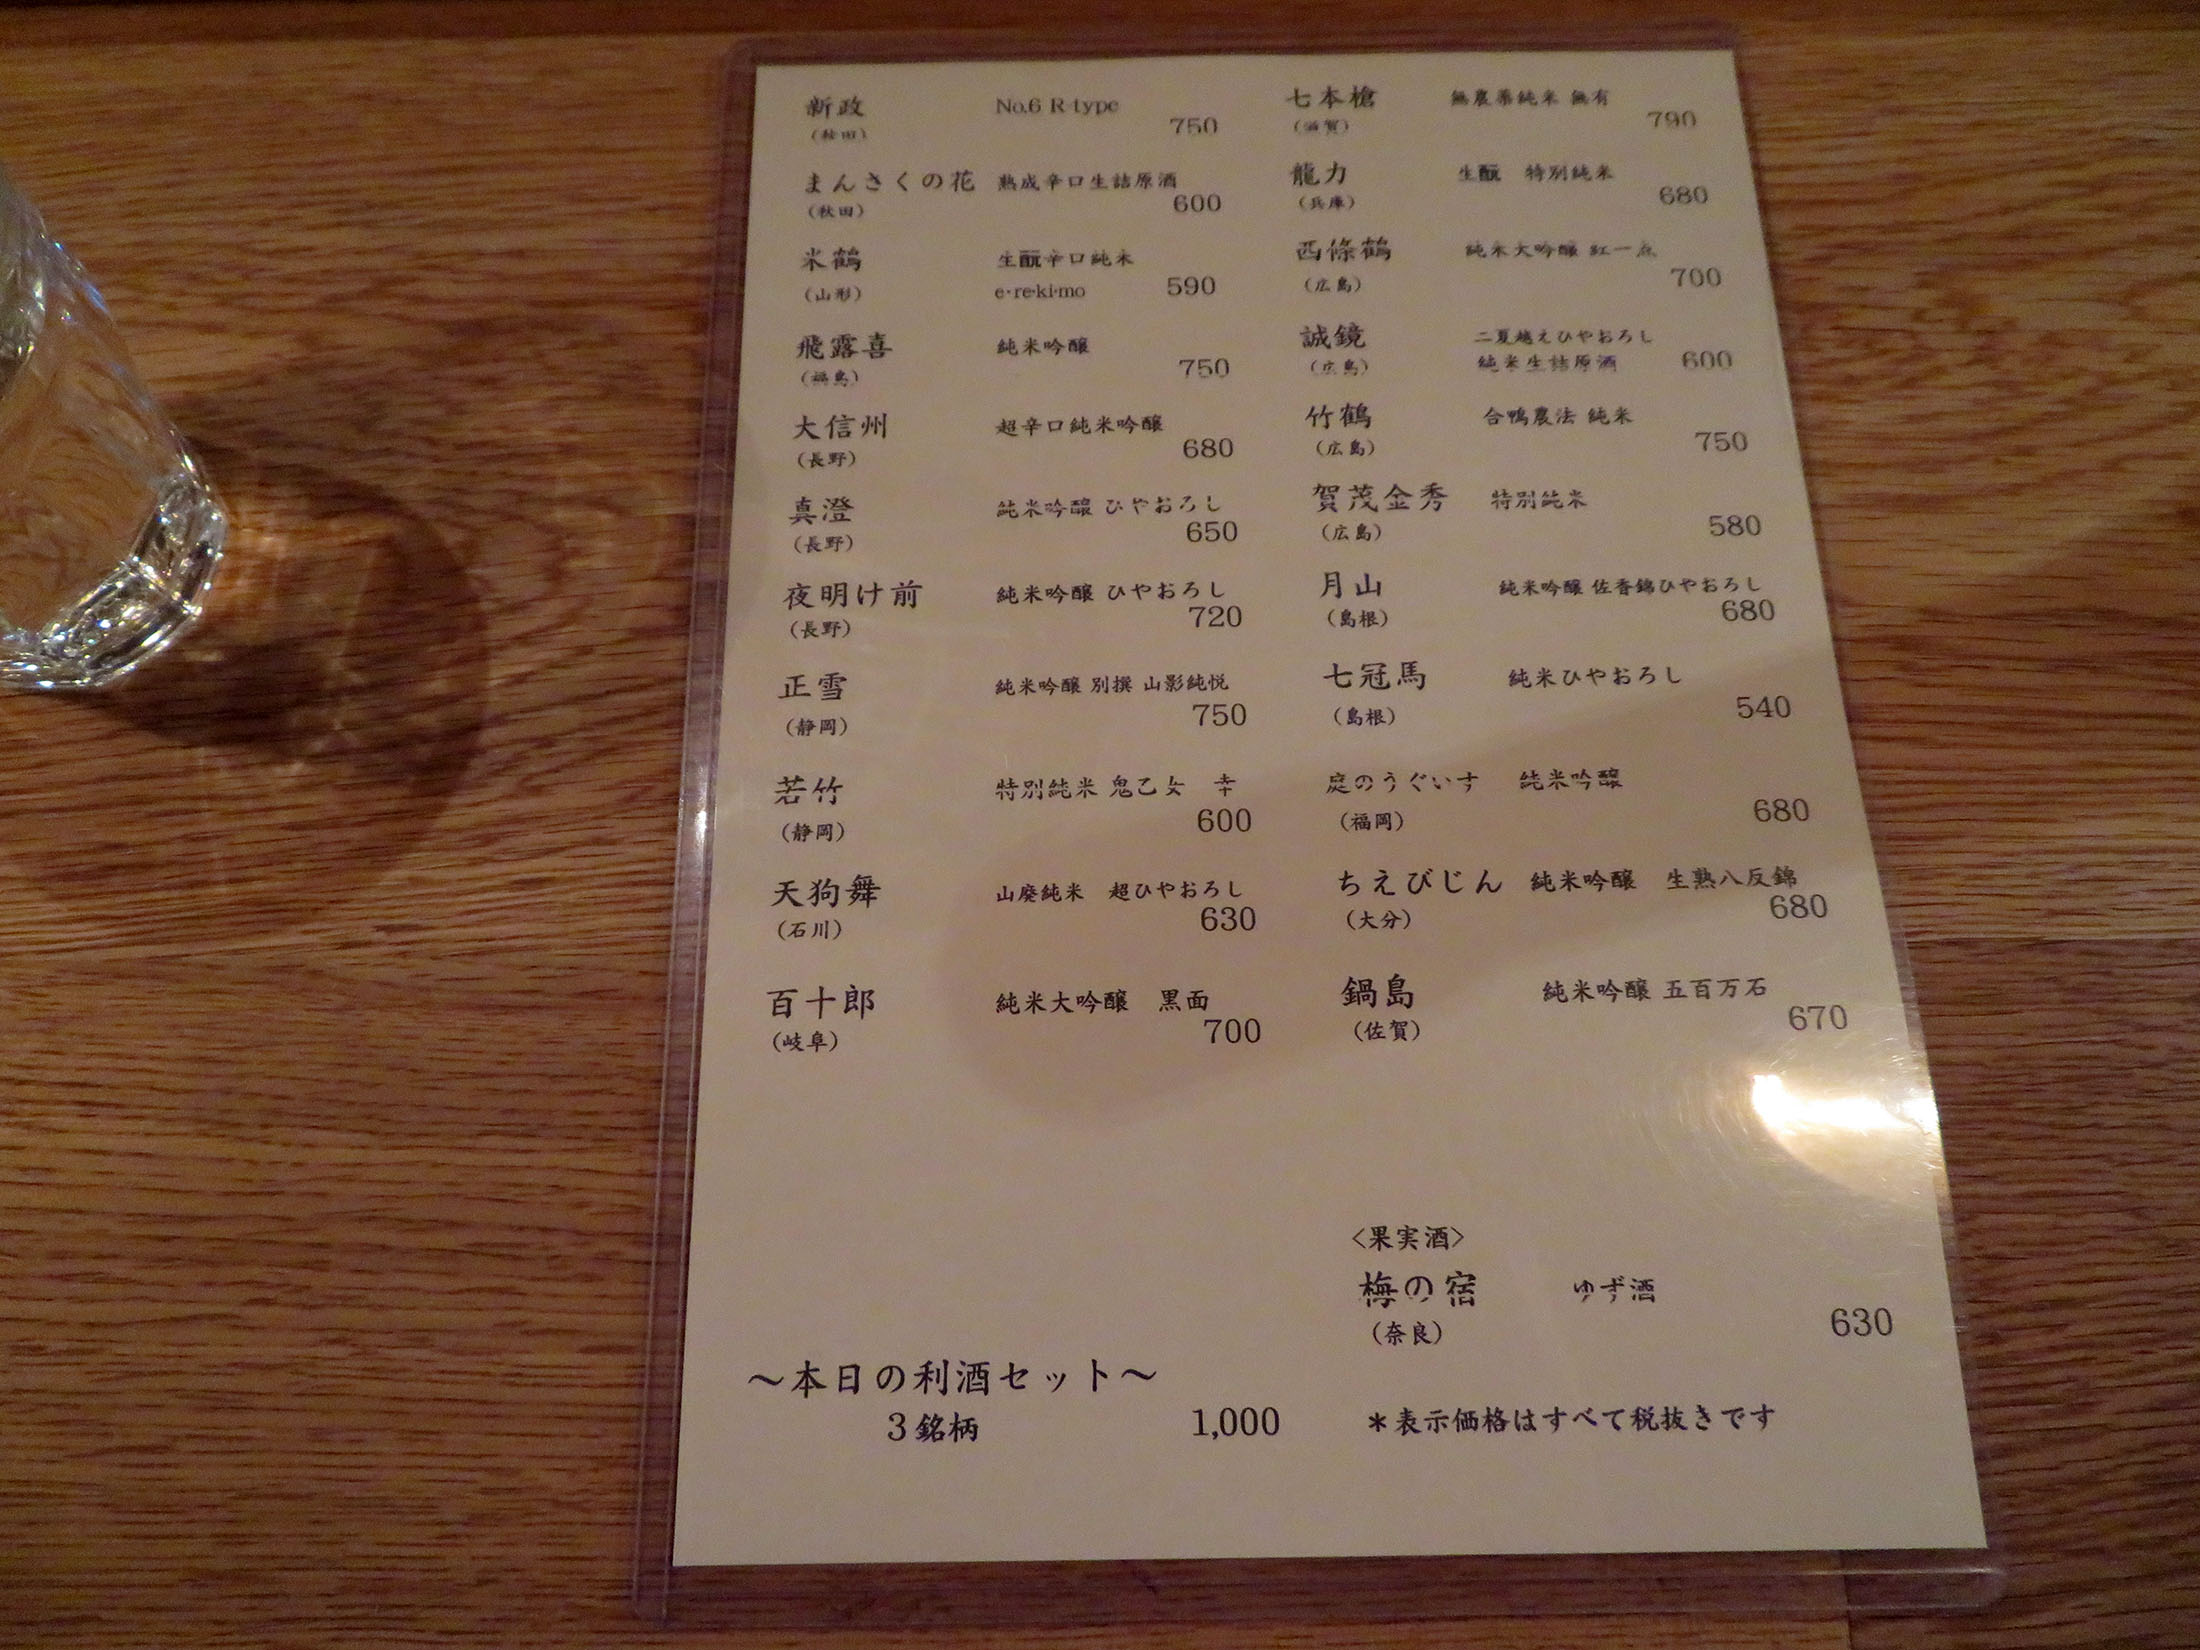 新政 No.6 R-type
(秋田) 750
まんさくの花 熟成辛口生詰原酒
(秋田) 600
米鶴 生酛辛口純米
(山形) e・re・ki・mo 590
飛露喜 純米吟醸
(福島) 750
大信州 超辛口純米吟醸
(長野) 680
真澄 純米吟醸 ひやおろし
(長野) 650
夜明け前 純米吟醸 ひやおろし
(長野) 720
正雪 純米吟醸 別撰 山影純悦
(静岡) 750
若竹 特別純米 鬼乙女 幸
(静岡) 600
天狗舞 山廃純米 超ひやおろし
(石川) 630
百十郎 純米大吟醸 黒面
(岐阜) 700
～本日の利酒セット～
3銘柄 1,000
七本槍 無農薬純米 無有
(滋賀) 790
龍力 生酛 特別純米
(兵庫) 680
西條鶴 純米大吟醸 紅一点
(広島) 700
誠鏡 二夏越えひやおろし
(広島) 純米生詰原酒 600
竹鶴 合鴨農法 純米
(広島) 750
賀茂金秀 特別純米
(広島) 580
月山 純米吟醸 佐香錦ひやおろし
(島根) 680
七冠馬 純米ひやおろし
(島根) 540
庭のうぐいす 純米吟醸
(福岡) 680
ちえびじん 純米吟醸 生熟八反錦
(大分) 680
鍋島 純米吟醸 五百万石
(佐賀) 670
〈果実酒〉
梅の宿 ゆず酒
(奈良) 630
＊表示価格はすべて税抜きです